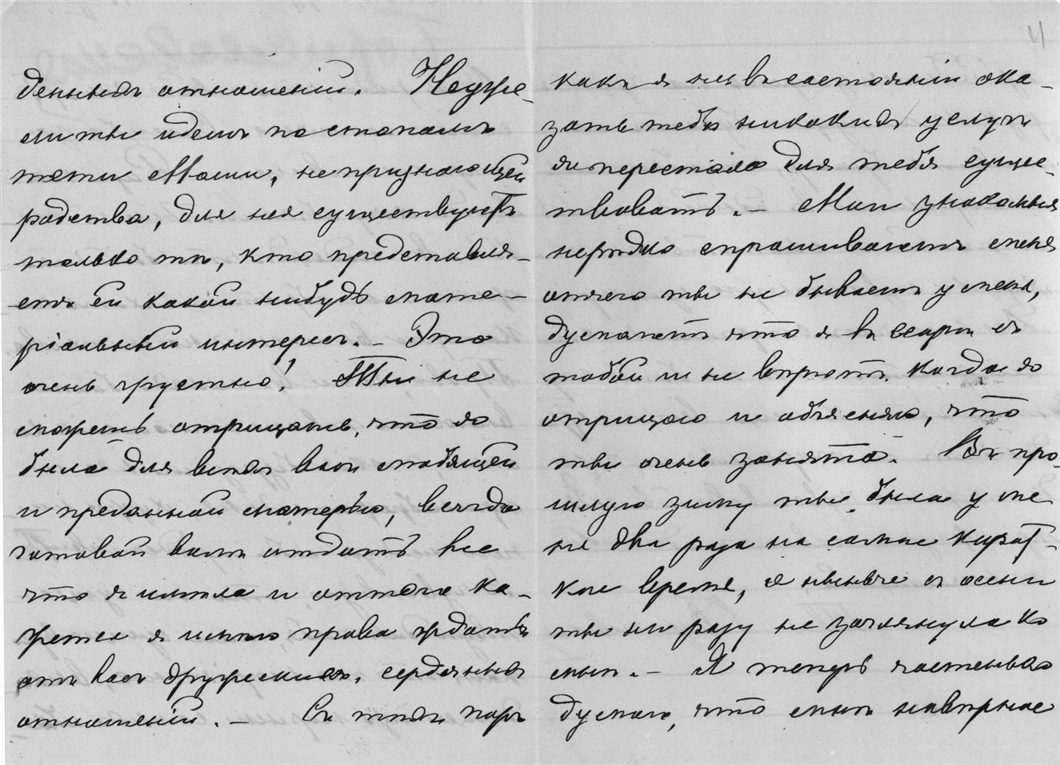 денныхъ отношеній. Неуже-
ли ты идешь по стопамъ
тети Маши, не признающей
родства, для нея существуютъ
только тѣ, кто представля-
етъ ей какой нибудь мате-
ріальный интересъ. – Это
очень грустно! Ты не
можешь отрицать, что я
была для всѣхъ васъ любящей
и преданной матерью, всегда
готовой вамъ отдать все
что я имѣла и оттого ка-
жется я имѣю право ждать
отъ васъ дружескихъ, сердечныхъ
отношеній. – Съ тѣхъ поръ
4
какъ я не въ состояніи ока-
зать тебѣ никакихъ услугъ
я перестала для тебя суще-
ствовать. – Мои знакомыя
нерѣдко спрашиваютъ меня
отчего ты не бываешь у меня,
думаютъ что я въ ссорѣ съ
тобой и не вѣрятъ когда я
отрицаю и объясняю, что
ты очень занята. Въ про-
шлую зиму ты была у ме-
ня два раза на самое корот-
кое время, а нынче съ осени
ты ни разу не заглянула ко
мнѣ. – Я теперь частенько
думаю, что мнѣ навѣрное